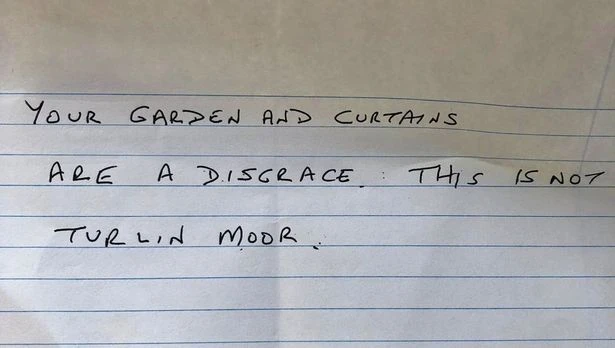 YOUR GARDEN AND CURTAINS
ARE A DISGRACE. THIS IS NOT
TURLIN MOOR.